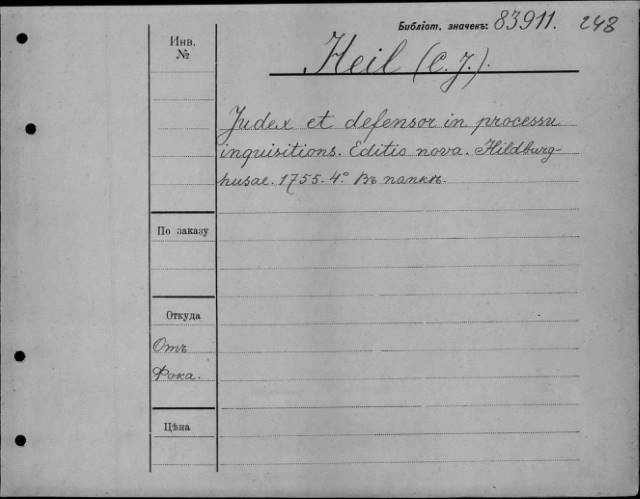 Библіот. значекъ: 83911. 248
Инв. №
Heil (C. J.).
Judex et defensor in processu
inquisitions. Editio nova. Hildburg-
husae. 1755. 4.° Въ папкѣ.
По заказу
Откуда
Отъ
Фока.
Цѣна